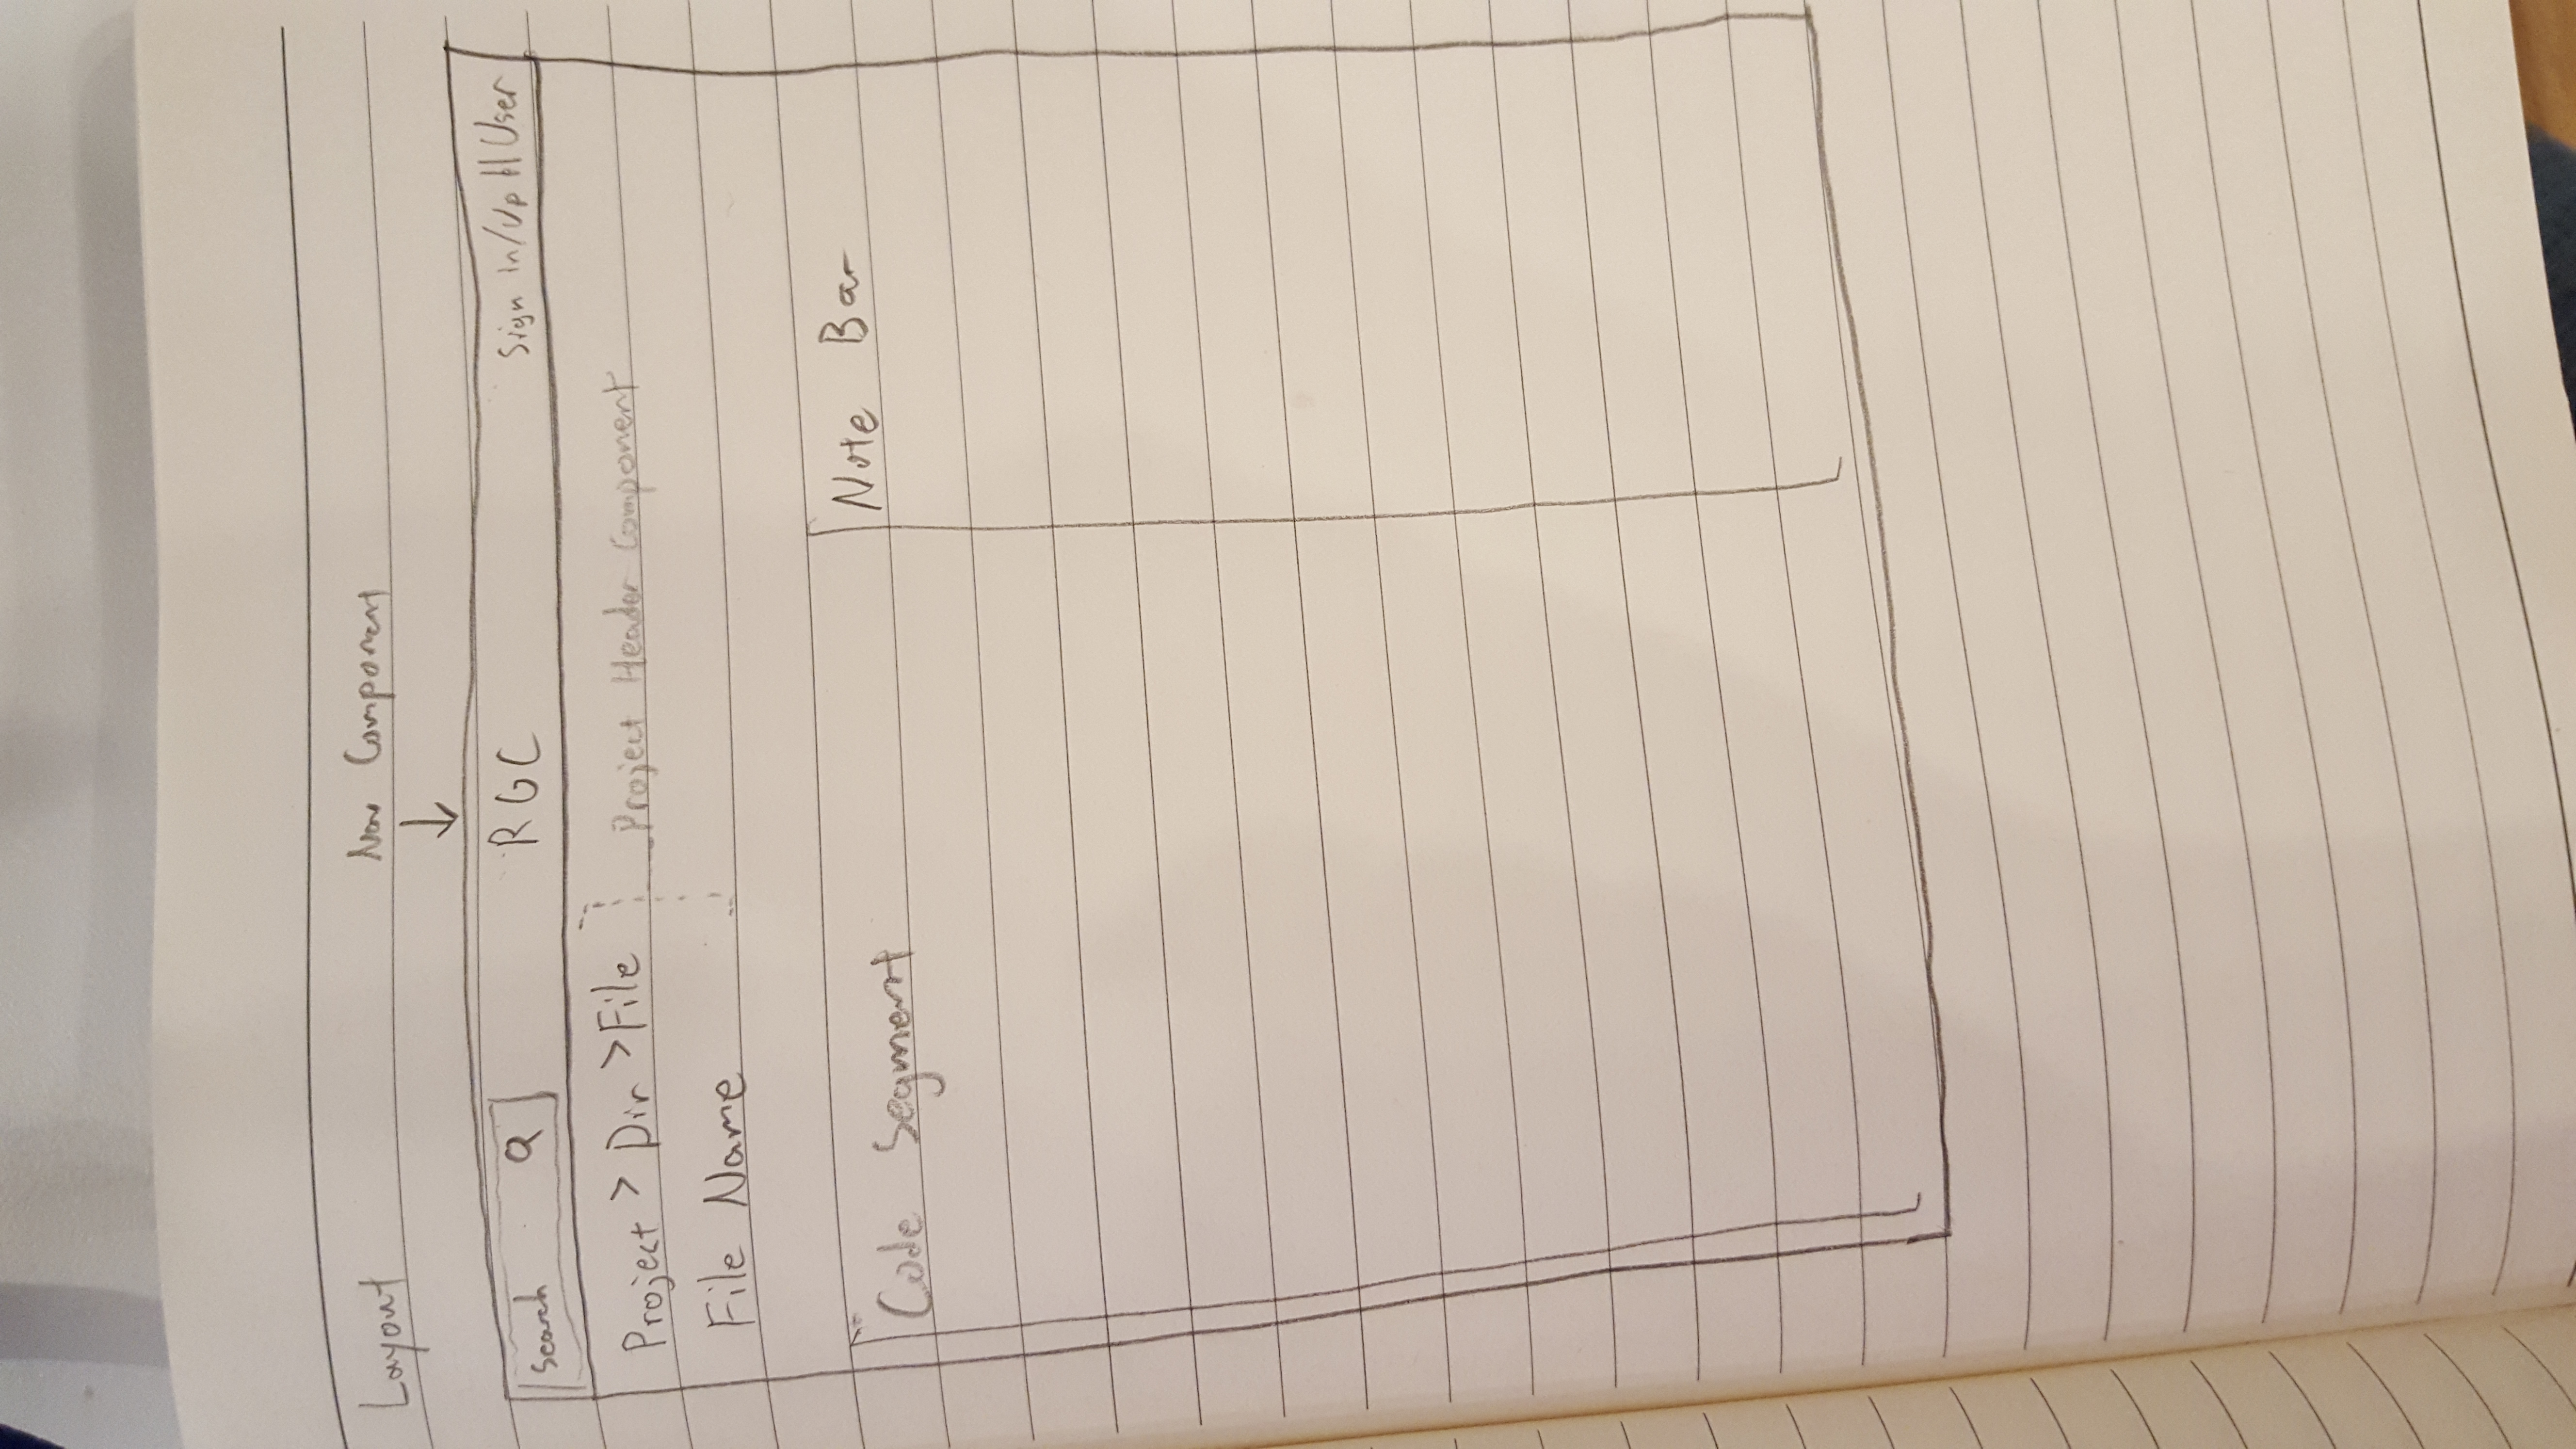 Layout
Nav Component
Search
RGC
Sign in/up || User
Project > Dir > File
Project Header Component
File Name
Code Segment
Note Bar